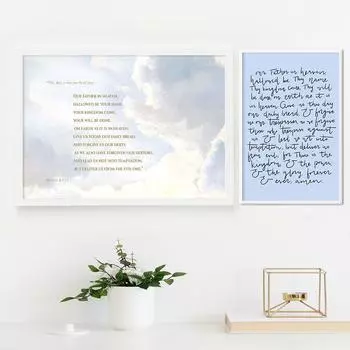 Our Father in heaven,
hallowed be your name,
your kingdom come,
your will be done,
on earth as it is in heaven.
Give us today our daily bread.
And forgive us our debts,
as we also have forgiven our debtors.
And lead us not into temptation,
but deliver us from the evil one."
our Father in heaven
hallowed be Thy Name
Thy kingdom come Thy will
be done on earth as it is
in heaven. Give us this day
our daily bread. & forgive
us our trespasses as we forgive
those who trespass against
us & lead us not into
temptation, but deliver us
from evil. for Thine is the
kingdom & the power
& the glory, forever
& ever, amen.